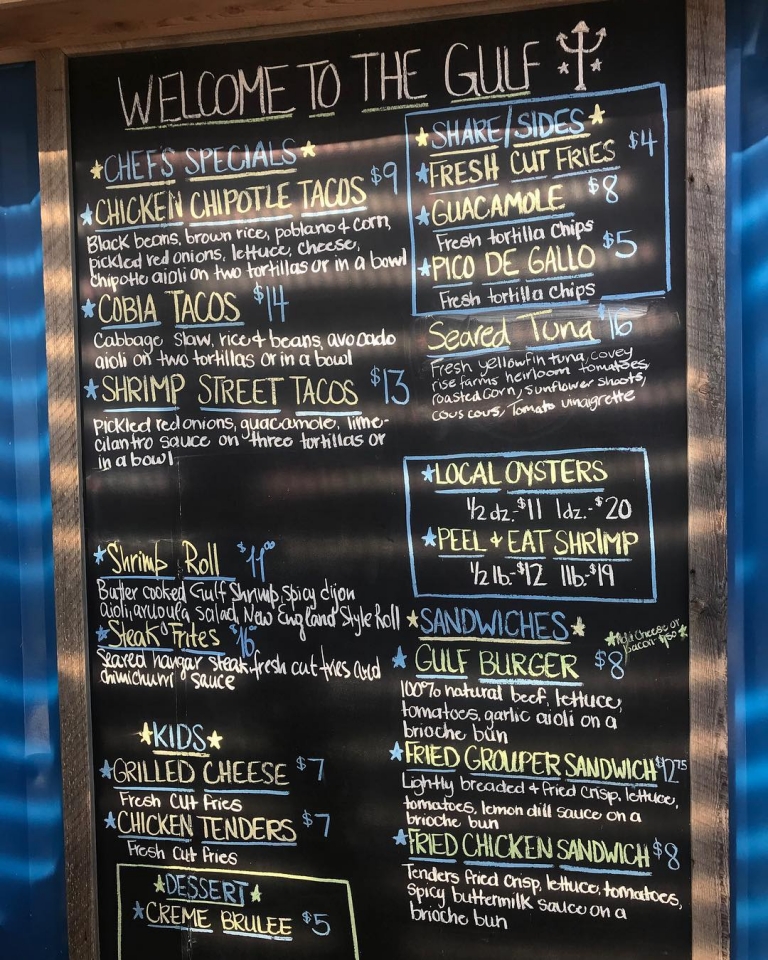 WELCOME TO THE GULF
CHEF'S SPECIALS
CHICKEN CHIPOTLE TACOS $9
Black beans, brown rice, poblano & corn,
pickled red onions, lettuce, cheese,
chipotle aioli on two tortillas or in a bowl
COBIA TACOS $14
Cabbage slaw, rice & beans, avocado
aioli on two tortillas or in a bowl
SHRIMP STREET TACOS $13
Pickled red onions, guacamole, lime-
cilantro sauce on three tortillas or
in a bowl
Shrimp Roll $11.00
Butter cooked Gulf Shrimp, spicy dijon
aioli, arugula salad, New England Style Roll
Steak Frites $16
Seared hangar steak, fresh cut fries and
chimichurri sauce
KIDS
GRILLED CHEESE $7
Fresh Cut Fries
CHICKEN TENDERS $7
Fresh Cut Fries
DESSERT
CREME BRULEE $5
SHARE/SIDES
FRESH CUT FRIES $4
GUACAMOLE $8
Fresh tortilla chips
PICO DE GALLO $5
Fresh tortilla chips
Seared Tuna $16
Fresh yellowfin tuna, covey
rise farms heirloom tomatoes,
roasted corn, sunflower shoots,
cous cous, Tomato vinaigrette
LOCAL OYSTERS
1/2 dz.-$11 1dz.-$20
PEEL & EAT SHRIMP
1/2 lb-$12 1lb-$19
SANDWICHES
Add Cheese or
Bacon $1.50
GULF BURGER $8
100% natural beef, lettuce,
tomatoes, garlic aioli on a
brioche bun
FRIED GROUPER SANDWICH $12.75
Lightly breaded & fried crisp, lettuce,
tomatoes, lemon dill sauce on a
brioche bun
FRIED CHICKEN SANDWICH $8
Tenders fried crisp, lettuce, tomatoes,
spicy buttermilk sauce on a
brioche bun